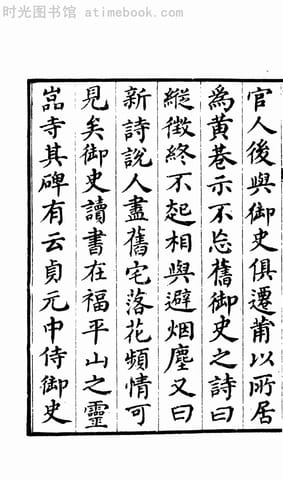 时光图书馆 atimebook.com
官人後與御史俱遷莆以所居
爲黄巷示不忘舊御史之詩曰
縱徴終不起相與避烟塵又曰
新詩說人盡舊宅落花頻情可
見矣御史讀書在福平山之靈
嵓寺其碑有云貞元中侍御史